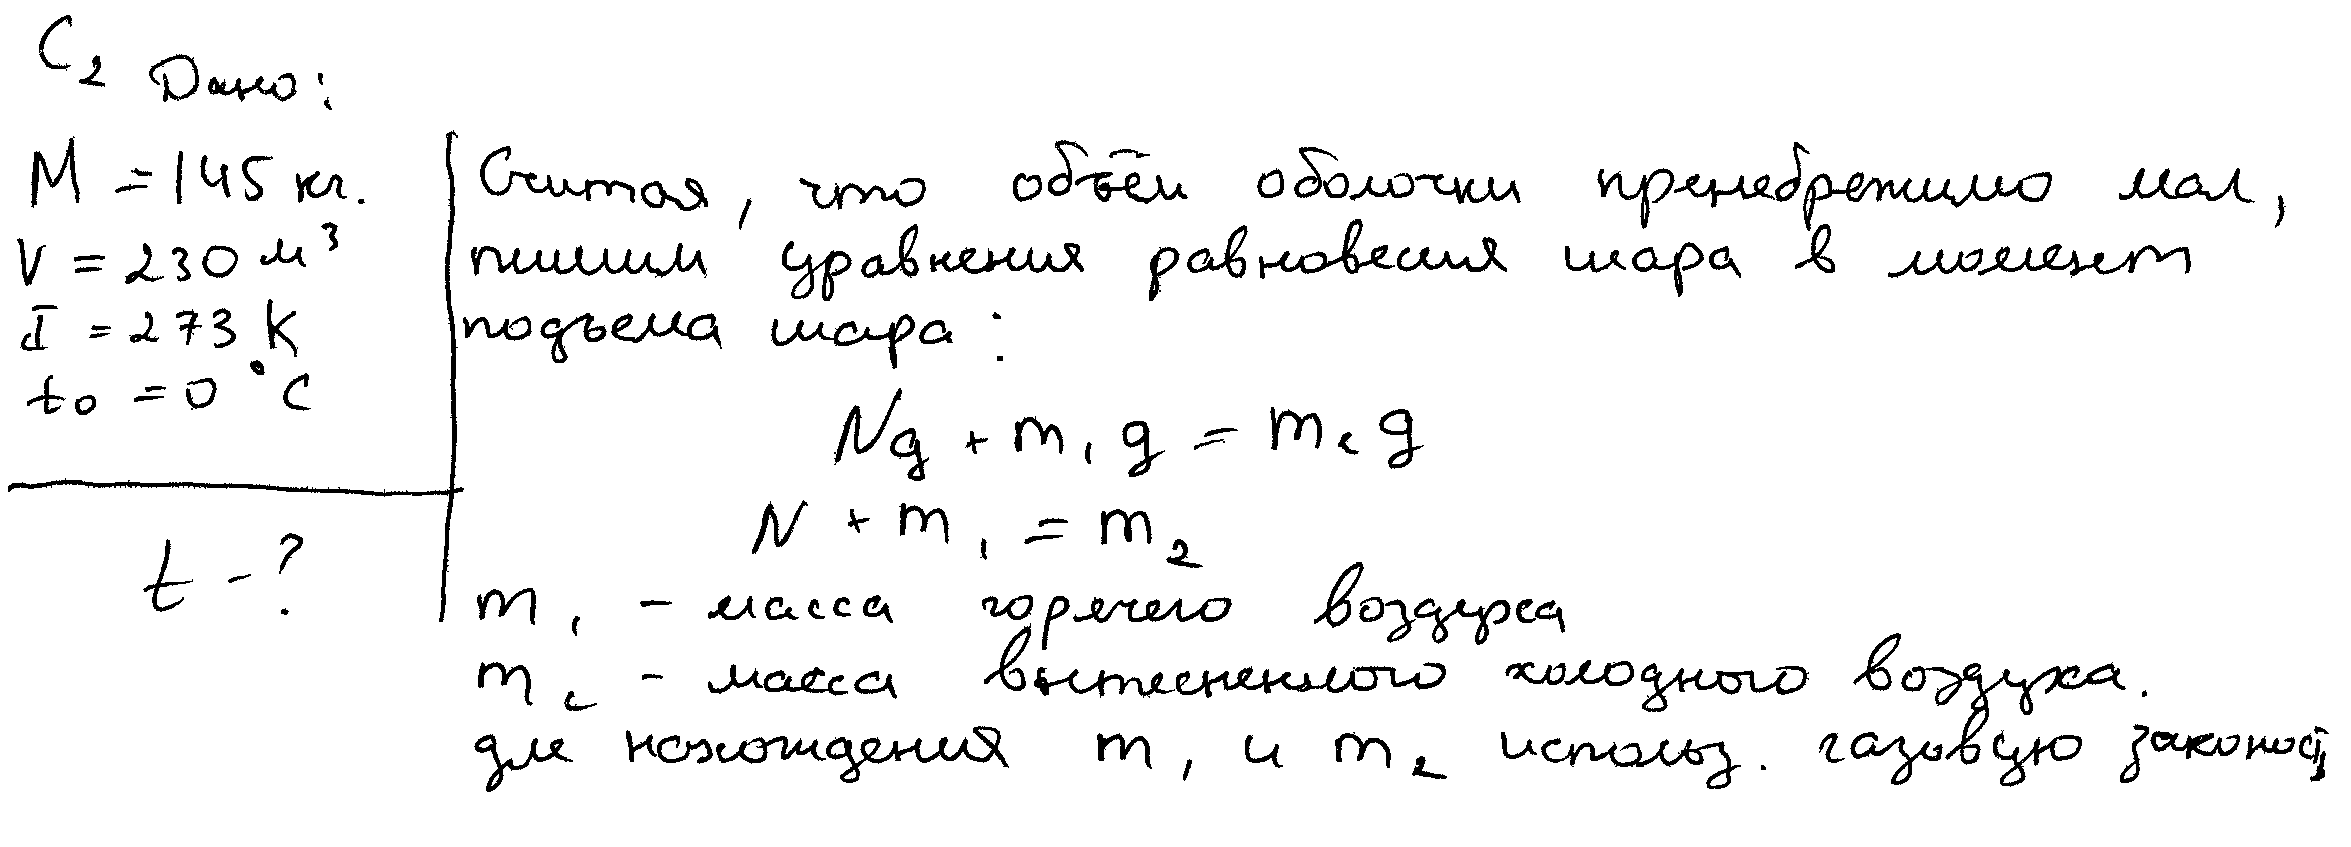 C2 Дано:
M = 145 кг.
V = 230 м³
T = 273 К
t0 = 0 °C
t - ?
Считая, что объём оболочки пренебрежимо мал,
пишим уравнения равновесия шара в момент
подъема шара:
Ng + m₁g = m₂g
N + m₁ = m₂
m₁ - масса горячего воздуха
m₂ - масса вытесненного холодного воздуха.
для нахождения m₁ и m₂ использ. газовую